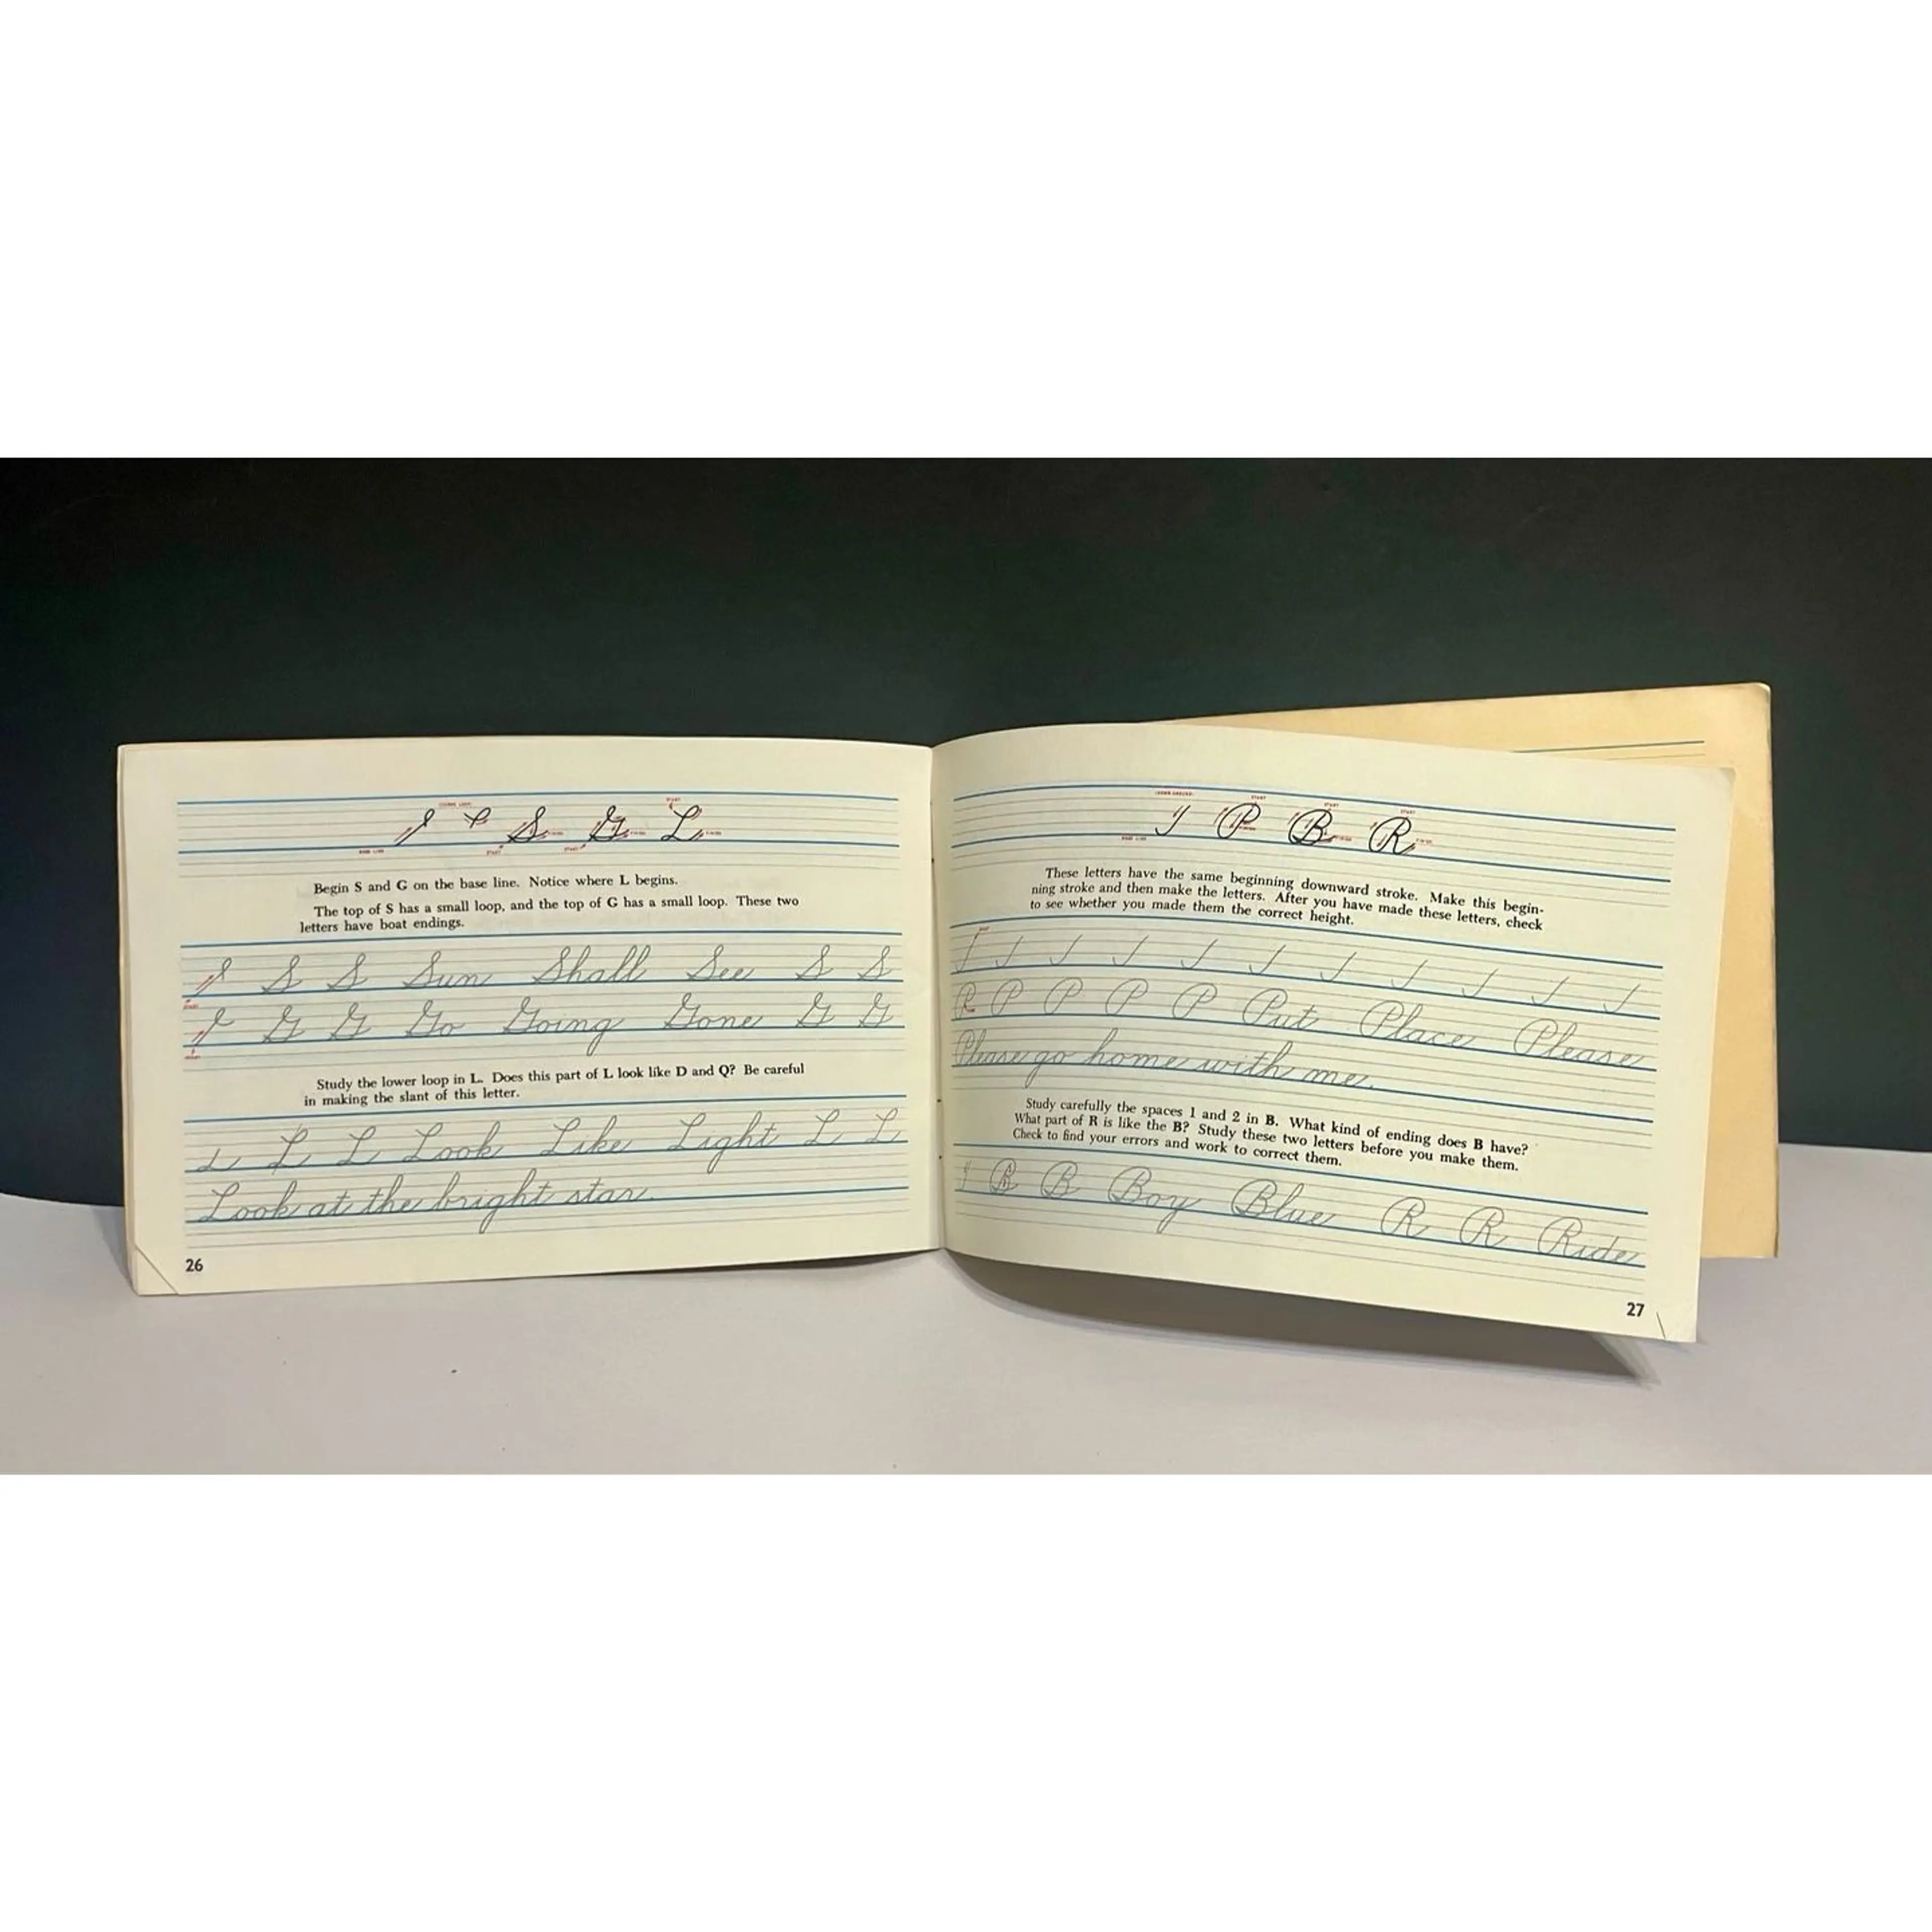 S G L
Begin S and G on the base line. Notice where L begins.
The top of S has a small loop, and the top of G has a small loop. These two
letters have boat endings.
S S Sun Shall See S S
G G Go Going Gone G G
Study the lower loop in L. Does this part of L look like D and Q? Be careful
in making the slant of this letter.
L L Look Like Light L L
Look at the bright star.
26
P B R
These letters have the same beginning downward stroke. Make this begin-
ning stroke and then make the letters. After you have made these letters, check
to see whether you made them the correct height.
P P P P P Put Place Please
Please go home with me.
Study carefully the spaces 1 and 2 in B. What kind of ending does B have?
What part of R is like the B? Study these two letters before you make them.
Check to find your errors and work to correct them.
B B Boy Blue R R Ride
27